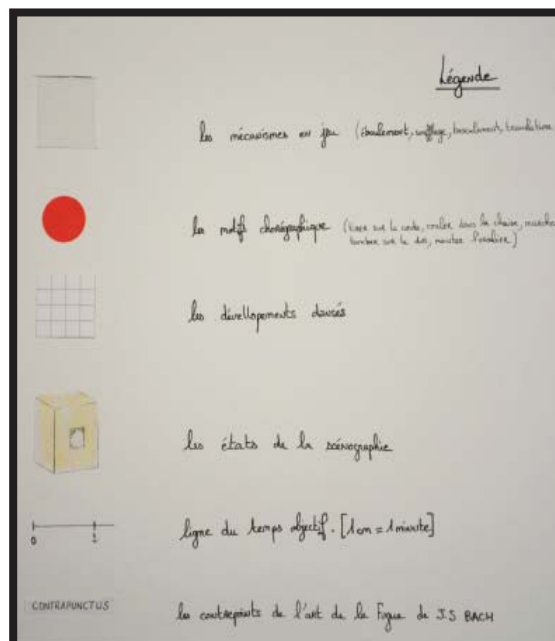 Légende
les mécanismes en jeu (éboulement, soufflage, basculement, translation
les motifs chorégraphique (tirer sur la corde, couler dans la chaise, marcher
tomber sur le dos, monter l'escalier)
les dévellopements dansés
les états de la scénographie
0 1
ligne du temps objectif. [1cm = 1 minute]
CONTRAPUNCTUS
les contrepoints de l'art de la Fugue de J.S BACH